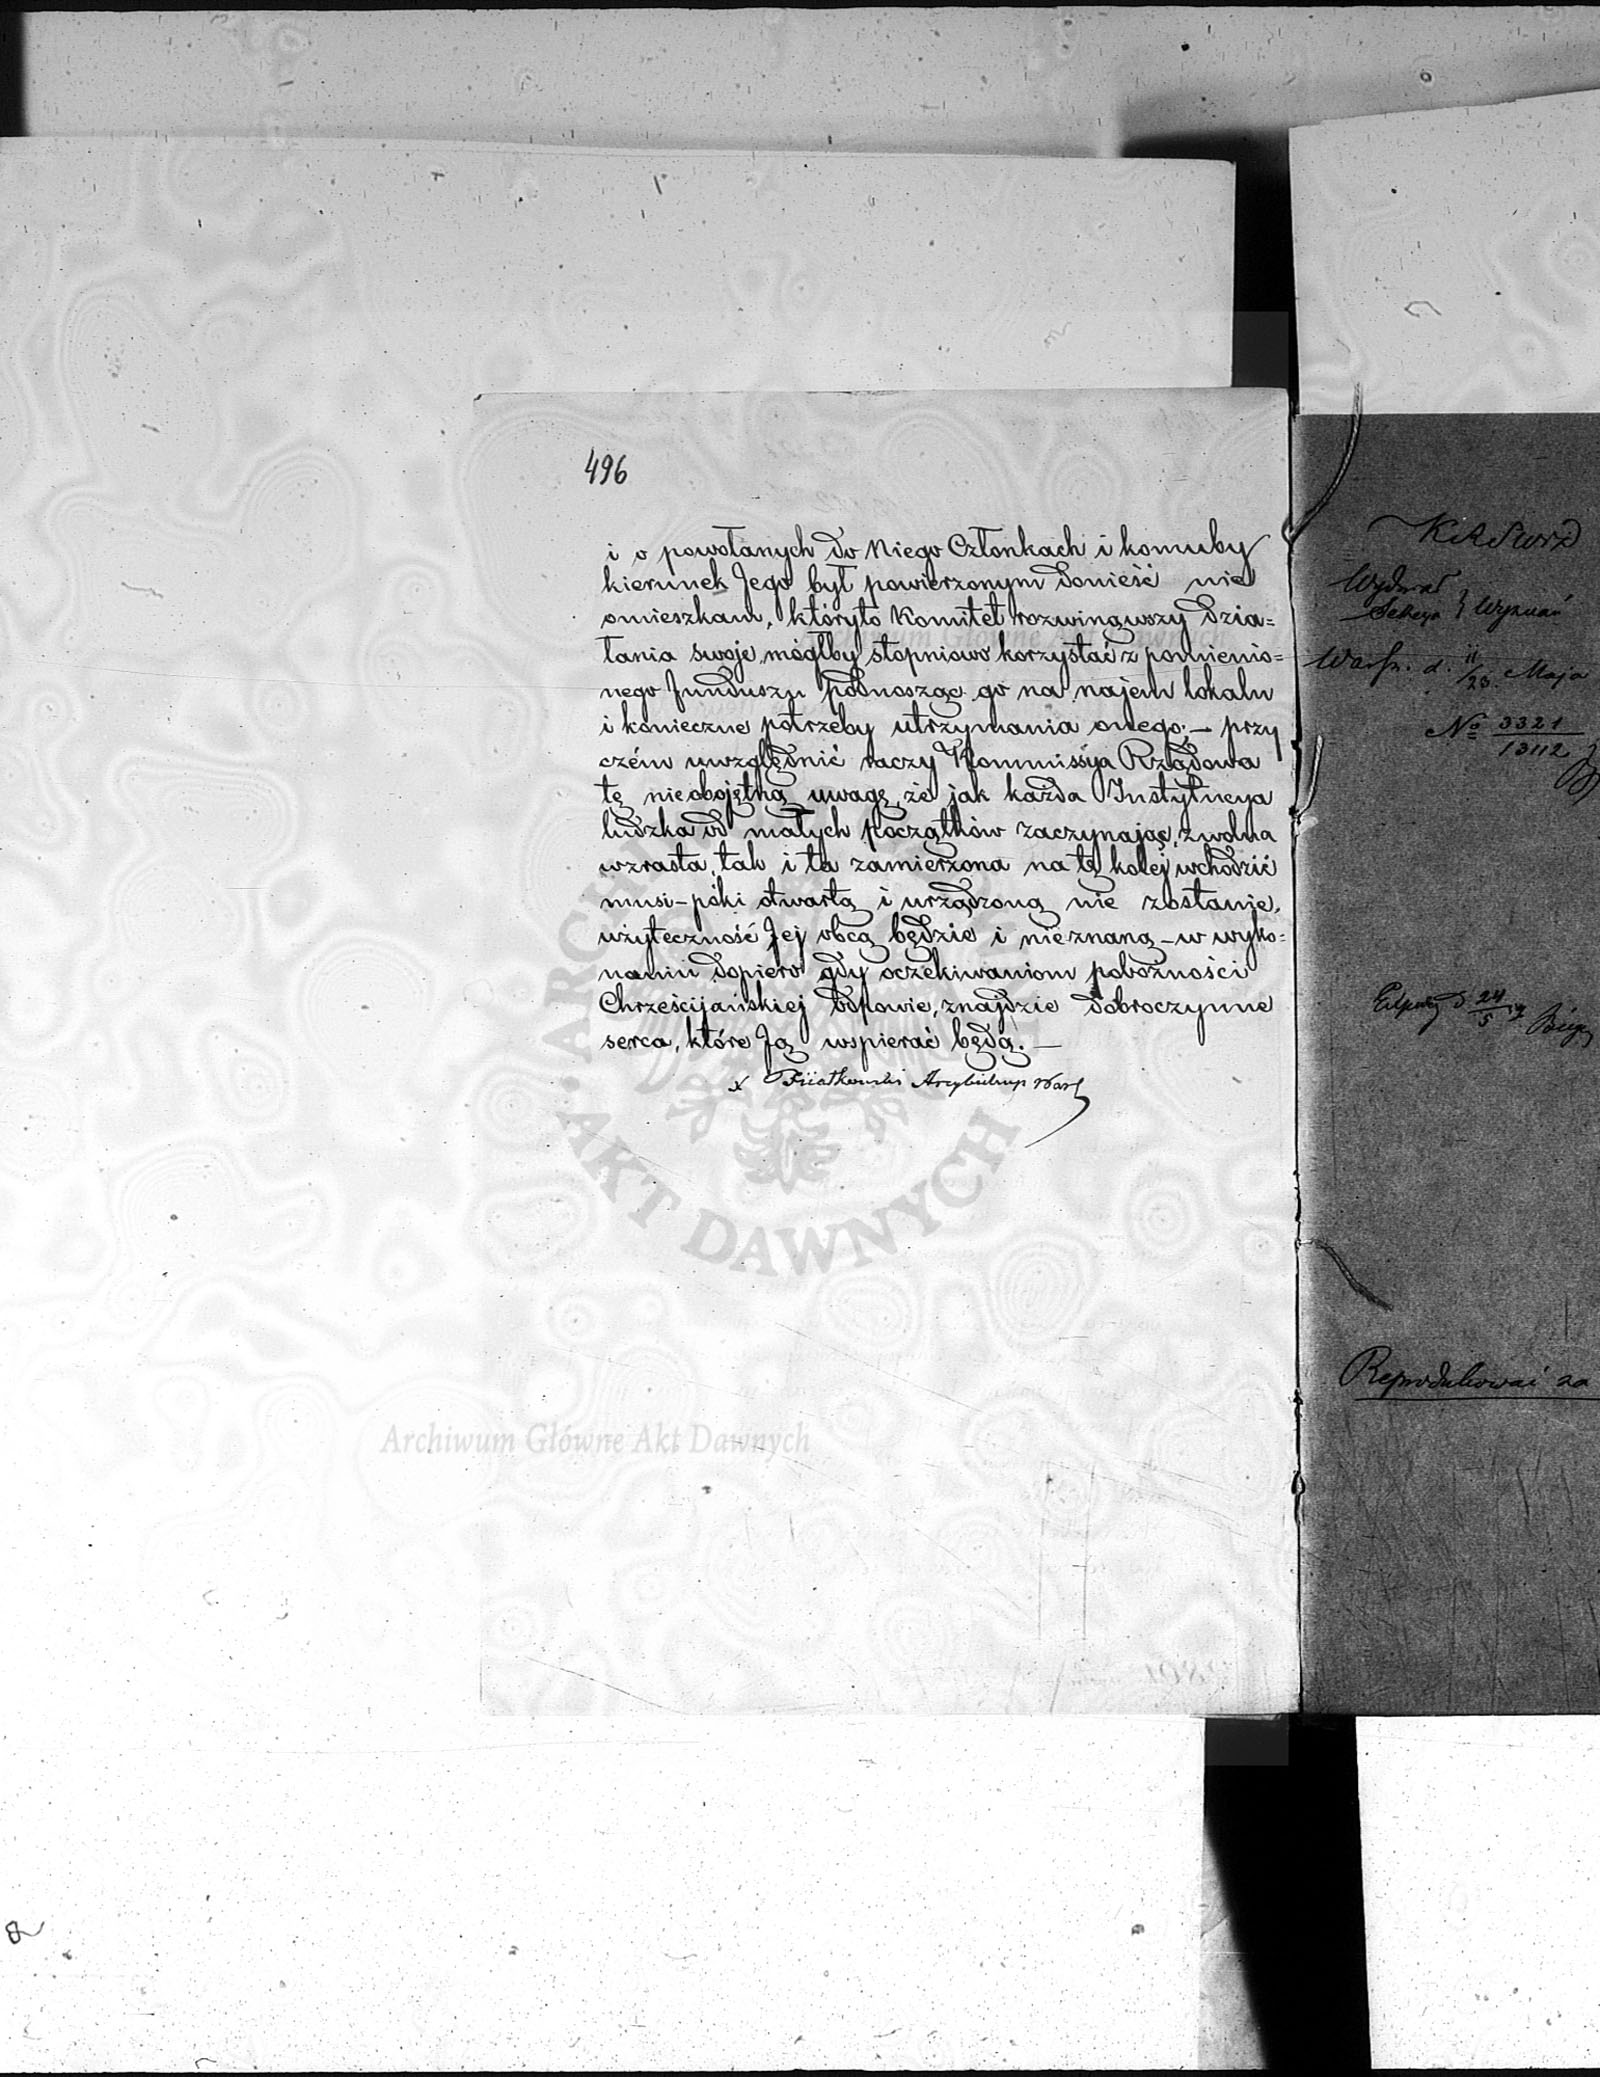 496
i o powołanych do Niego Członkach i komuby
kierunek Jego był powierzonym donieść nie
omieszkam, któryto Komitet rozwinąwszy dzia=
łania swoje, mógłby stopniowo korzystać z pomienio=
nego funduszu podnosząc go na najem lokalu
i konieczne potrzeby utrzymania onego; — przy
czém uwzględnić raczy Kommissya Rządowa
tę nieobojętną uwagę, że jak każda Instytucya
ludzka od małych początków zaczynając, zwolna
wzrasta, tak i ta zamierzona na tę kolej wchodzić
musi – póki otwartą i urządzoną nie zostanie,
użyteczność Jej obcą będzie i nieznaną – w wyko=
naniu dopiero gdy oczekiwaniom pobożności
Chrześcijańskiej odpowie, znajdzie dobroczynne
serca, które Ją wspierać będą. —
x Fijałkowski Arcybiskup Warsz
Wydział
Sekcya } Wyznań
Warsz. d. 11/23 Maja
No 3321/13112
24/5
Reprodukować za
Archiwum Główne Akt Dawnych
ARCHIWUM
AKT DAWNYCH
Archiwum Główne Akt Dawnych